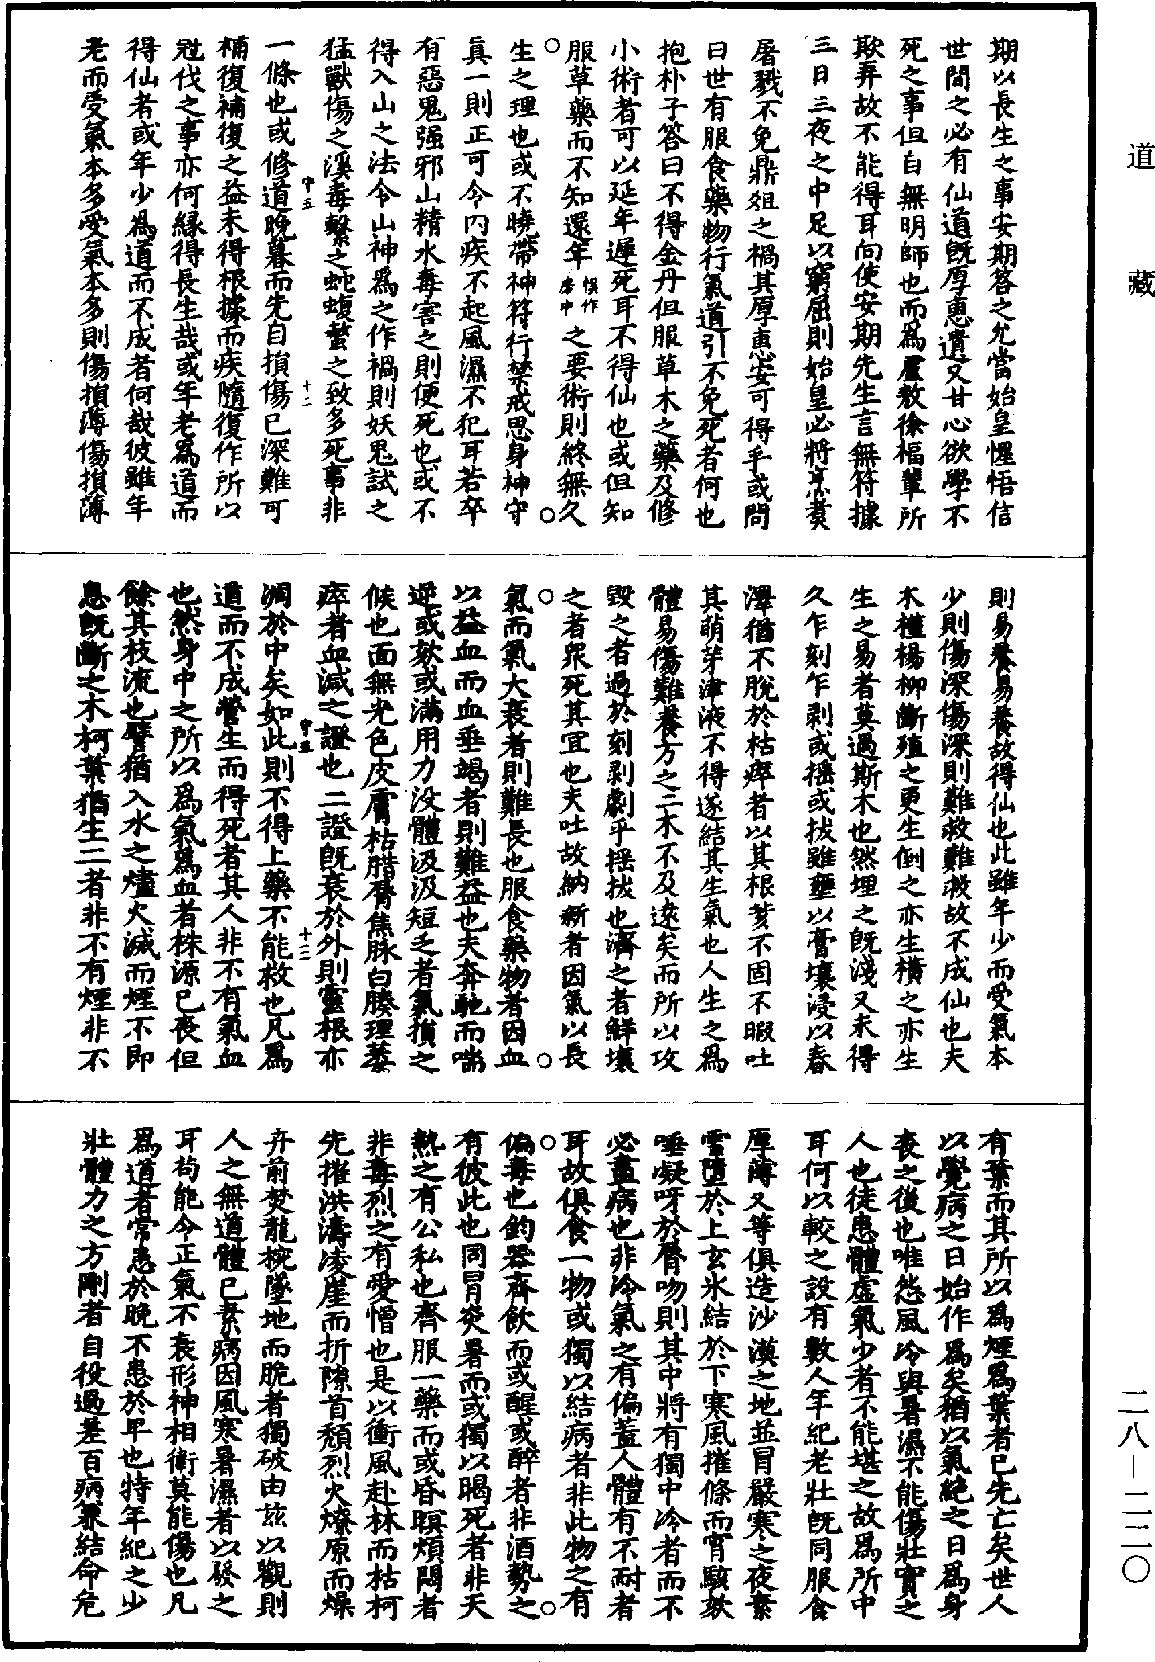 道藏
二八—二二〇
期以長生之事安期荅之允當始皇惺悟信
世間之必有仙道旣厚惠遺又甘心欲學不
死之事但自無明師也而爲盧敖徐福輩所
欺弄故不能得耳向使安期先生言無符據
三日三夜之中足以窮屈則始皇必將烹煑
屠戮不免鼎俎之禍其厚惠安可得乎或問
曰世有服食藥物行氣道引不免死者何也
抱朴子答曰不得金丹但服草木之藥及修
小術者可以延年遲死耳不得仙也或但知
服草藥而不知還年之要術則終無久
生之理也或不曉帶神符行禁戒思身神守
真一則正可令内疾不起風濕不犯耳若卒
有惡鬼强邪山精水毒害之則便死也或不
得入山之法令山神爲之作禍則妖鬼試之
猛獸傷之溪毒繫之蛇蝮螫之致多死事非
一條也或修道晚暮而先自損傷已深難可
補復補復之益未得根據而疾隨復作所以
尅伐之事亦何緣得長生哉或年老爲道而
得仙者或年少爲道而不成者何哉彼雖年
老而受氣本多受氣本多則傷損薄傷損薄
則易養易養故得仙也此雖年少而受氣本
少則傷深傷深則難救難救故不成仙也夫
木槿楊柳斷殖之更生倒之亦生橫之亦生
生之易者莫過斯木也然埋之旣淺又未得
久乍刻乍剥或搖或拔雖壅以膏壤浸以春
澤猶不脫於枯瘁者以其根荄不固不暇吐
其萌芽津液不得遂結其生氣也人生之爲
體易傷難養方之二木不及遠矣而所以攻
毀之者過於刻剥劇乎搖拔也濟之者鮮壞
之者衆死其宜也夫吐故納新者因氣以長
氣而氣大衰者則難長也服食藥物者因血
以益血而血垂竭者則難益也夫奔馳而喘
逆或欬或滿用力没體汲汲短乏者氣損之
候也面無光色皮膚枯腊脣焦脉白腠理萎
瘁者血減之證也二證旣衰於外則靈根亦
凋於中矣如此則不得上藥不能救也凡爲
道而不成營生而得死者其人非不有氣血
也然身中之所以爲氣爲血者株源已喪但
餘其枝流也譬猶入水之燼火滅而煙不即
息旣斷之木柯葉猶生二者非不有煙非不
有葉而其所以爲煙爲葉者已先亡矣世人
以覺病之日始作爲矣猶以氣絶之日爲身
喪之後也唯怨風冷與暑濕不能傷壯實之
人也徒患體虛氣少者不能堪之故爲所中
耳何以較之設有數人年紀老壯旣同服食
厚薄又等俱造沙漠之地並冒嚴寒之夜素
雪墮於上玄氷結於下寒風摧條而宵駭欬
唾凝呀於脣吻則其中將有獨中冷者而不
必盡病也非冷氣之有偏蓋人體有不耐者
耳故俱食一物或獨以結病者非此物之有
偏毒也鈞器齊飲而或醒或醉者非酒勢之
有彼此也同冒炎暑而或獨以暍死者非天
熱之有公私也齊服一藥而或昏暝煩悶者
非毒烈之有愛憎也是以衝風赴林而枯柯
先摧洪濤凌崖而折隙首頹烈火燎原而燥
卉前焚龍椀墜地而脆者獨破由玆以觀則
人之無道體已素病因風寒暑濕者以發之
耳苟能令正氣不衰形神相衛莫能傷也凡
爲道者常患於晚不患於早也恃年紀之少
壯體力之方剛者自役過差百病兼結命危